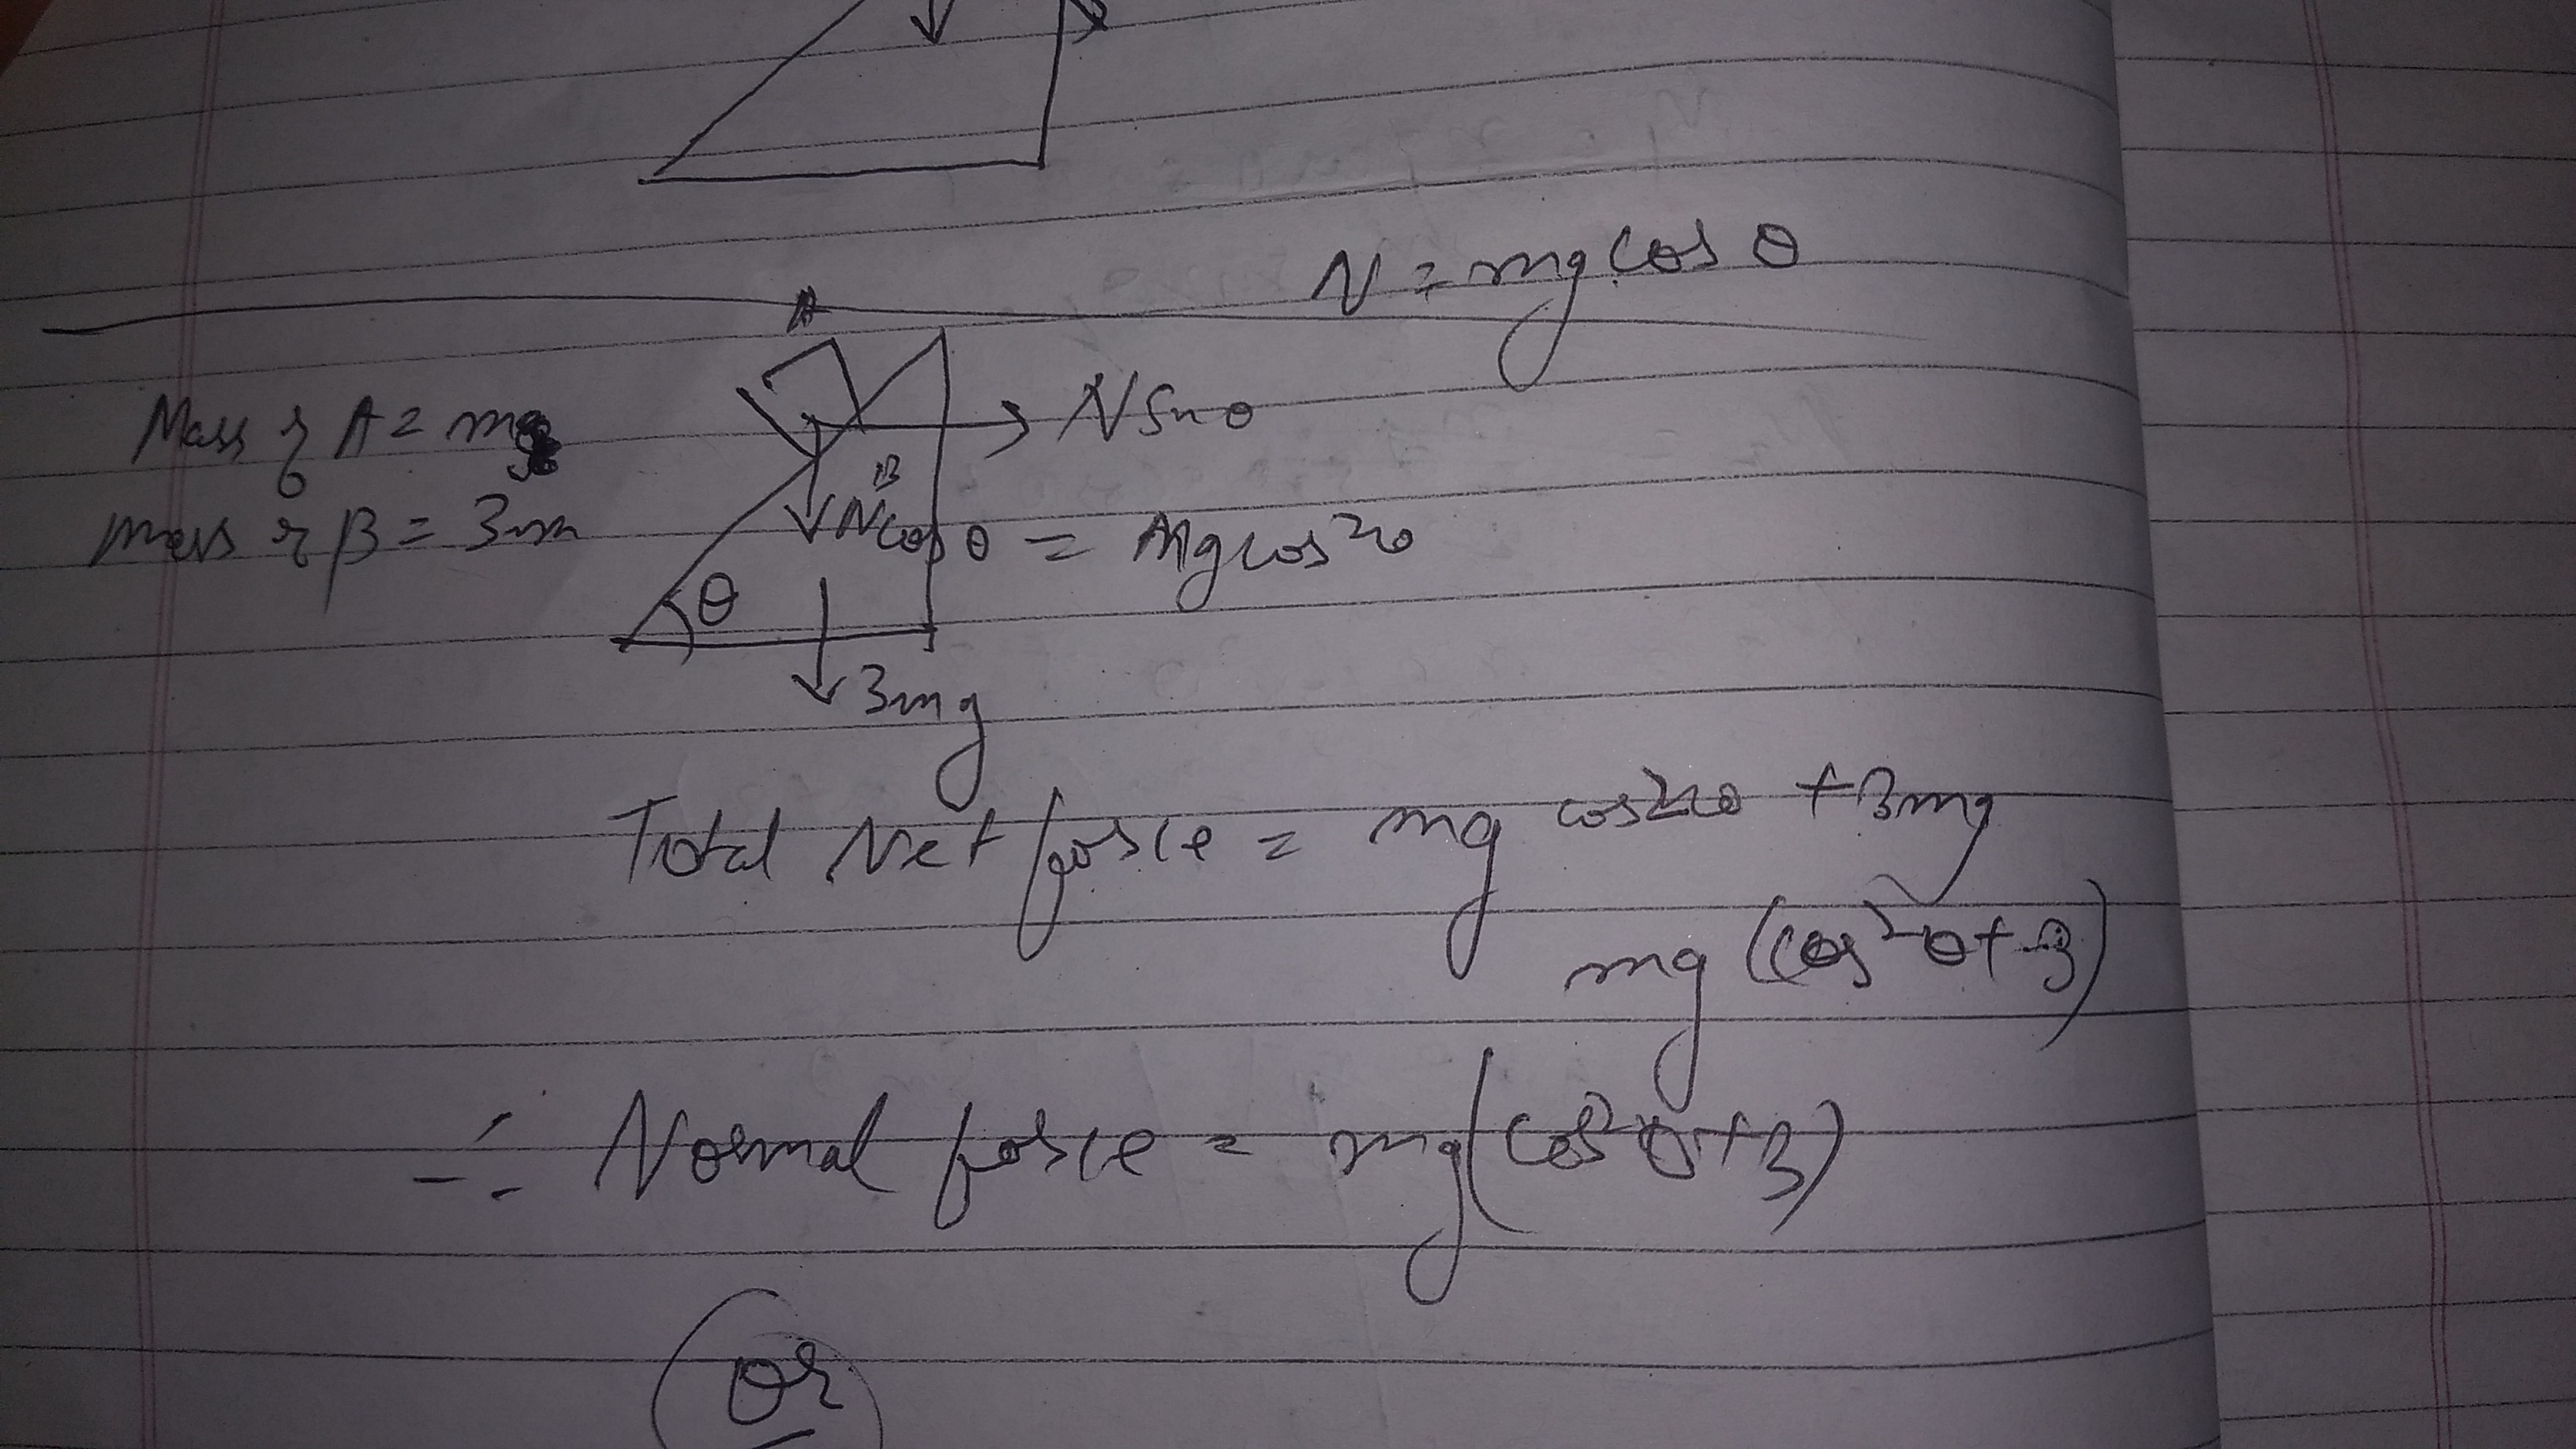 N = mg cos θ
A
N sin θ
Mass of A = m
B
mass of B = 3m
N cos θ = mg cos²θ
θ
3mg
Total Net force = mg cos²θ + 3mg
mg (cos²θ + 3)
∴ Normal force = mg (cos²θ + 3)
Or